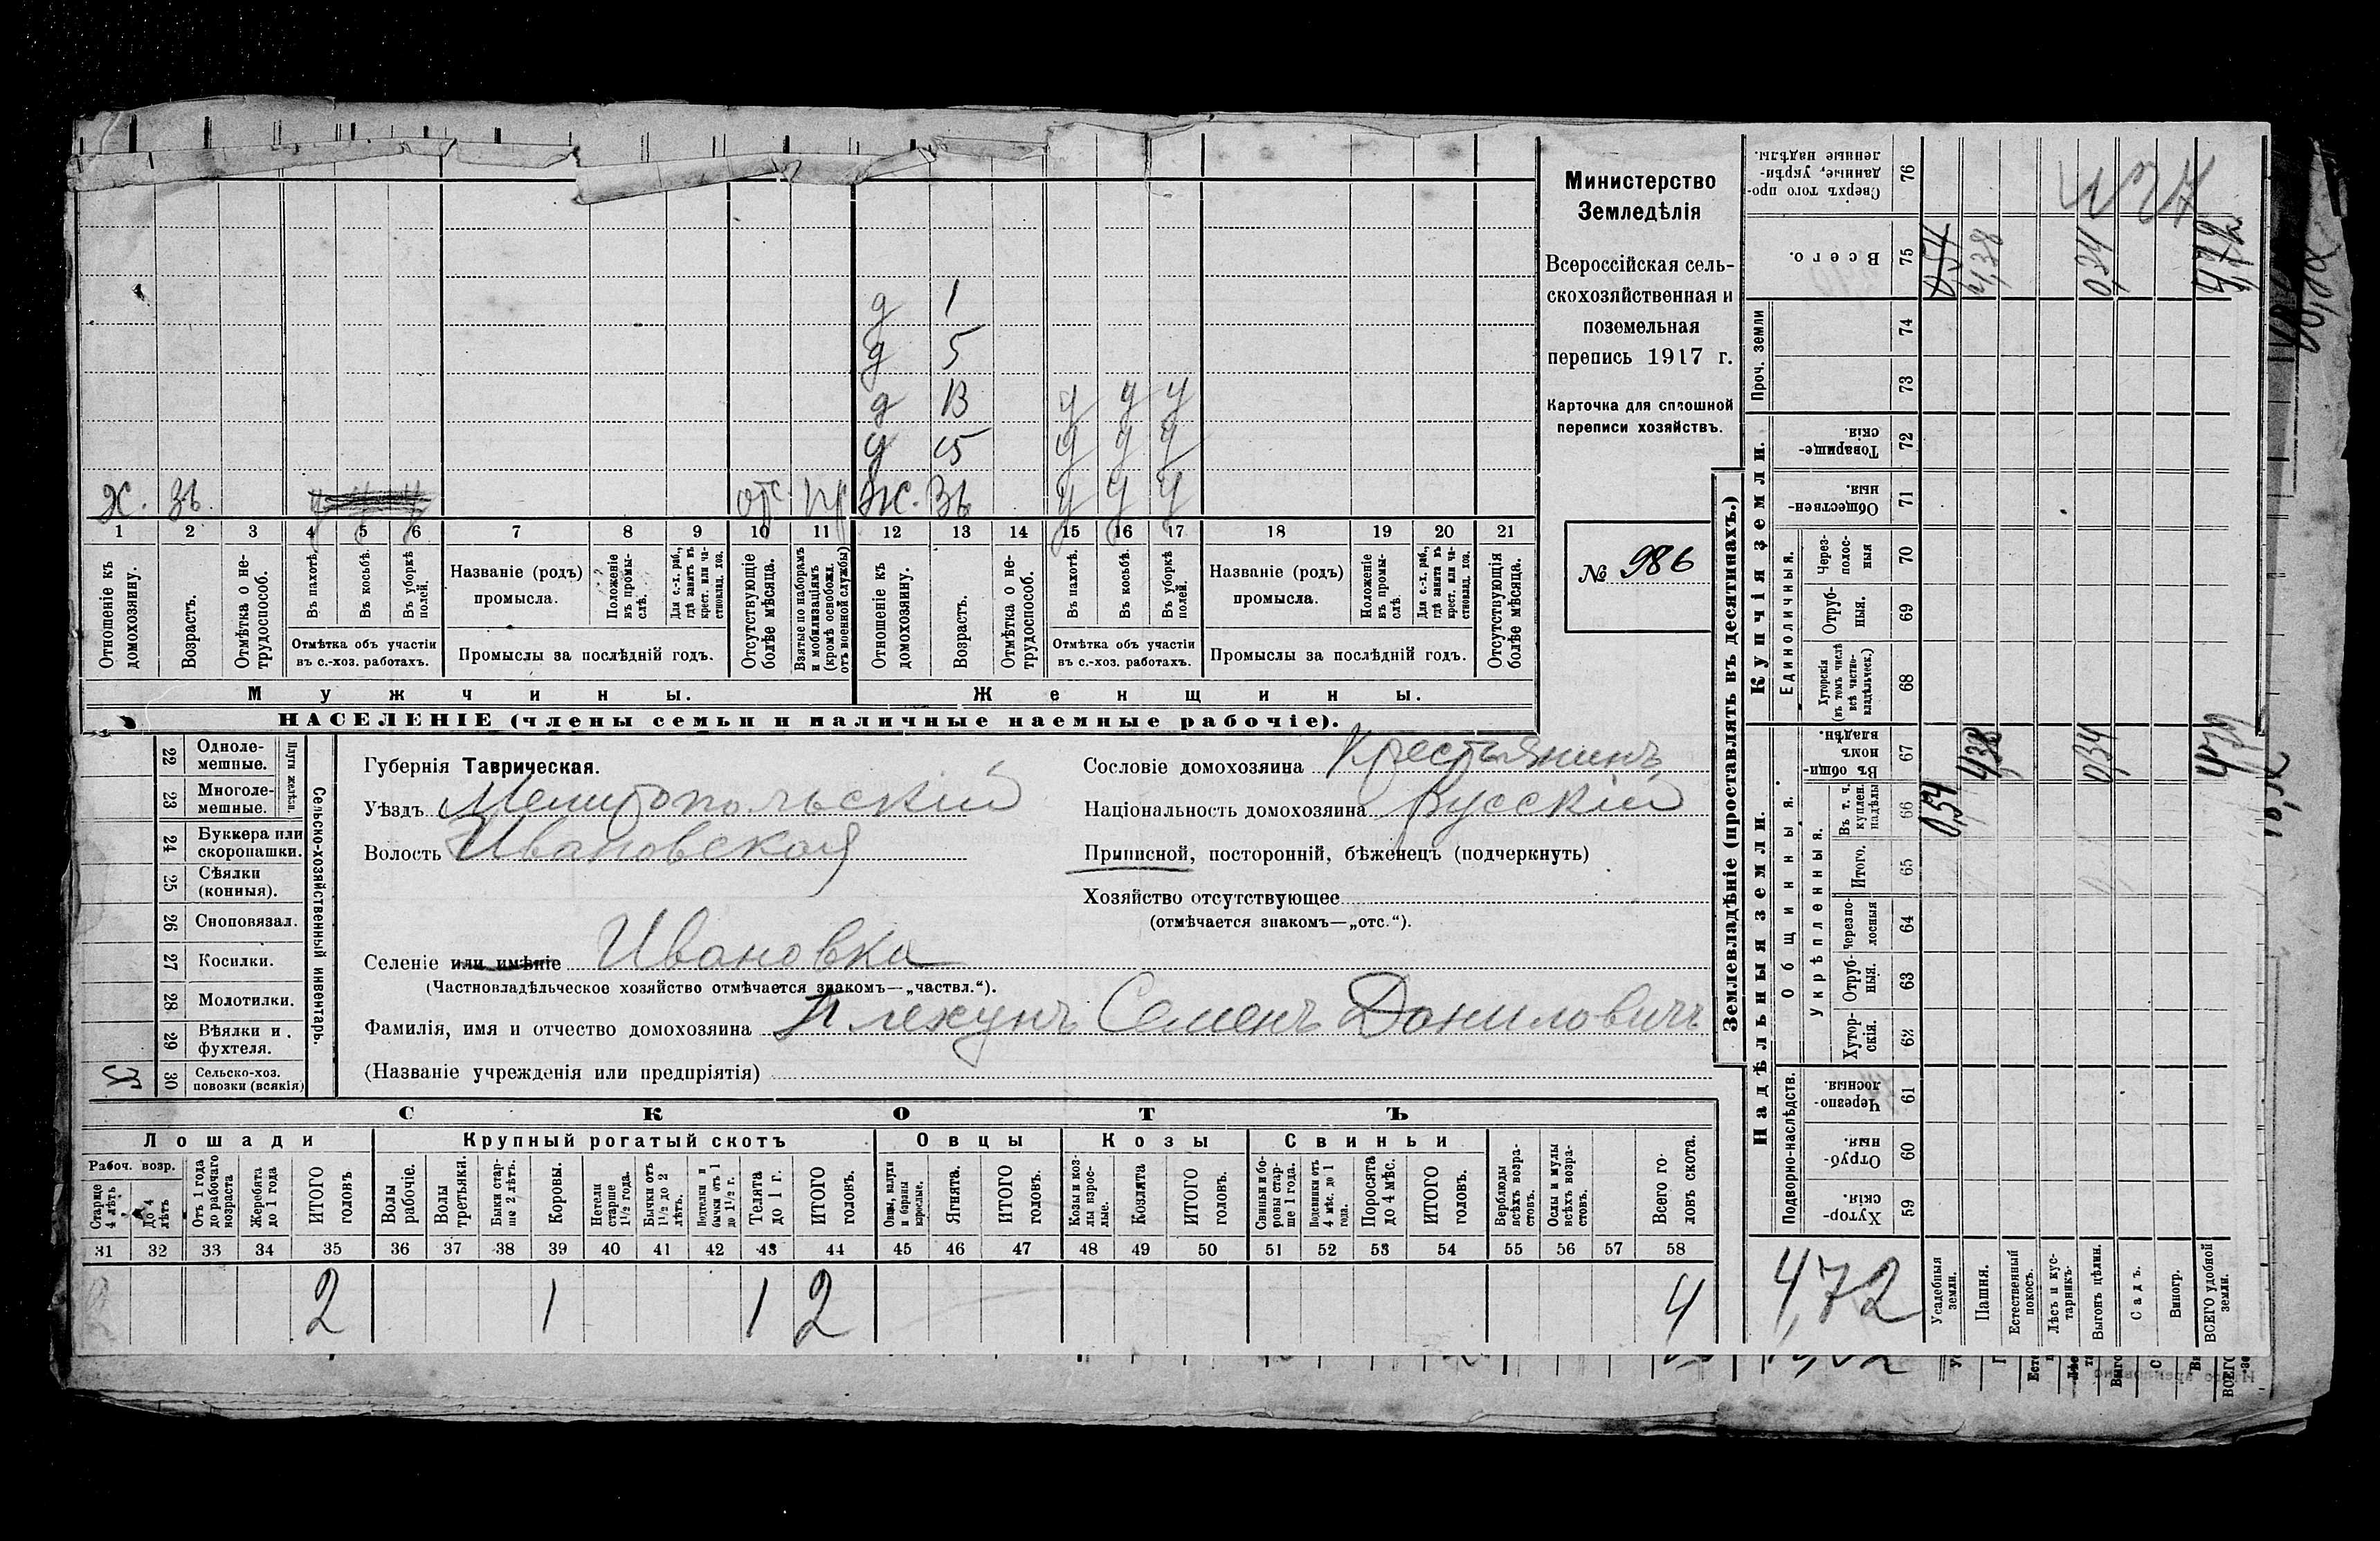 Министерство
Земледѣлія
Всероссійская сель-
скохозяйственная и
поземельная
перепись 1917 г.
Карточка для сплошной
переписи хозяйствъ.
№ 986
д 1
д 5
д 13 у у у
д 15 у у у
Х. 36 у у у отс. Ж. 36 у у у
1 2 3 4 5 6 7 8 9 10 11 12 13 14 15 16 17 18 19 20 21
Отношеніе къ домохозяину.
Возрастъ.
Отмѣтка о не-трудоспособ.
Въ пахотѣ.
Въ косьбѣ.
Въ уборкѣ полей.
Отмѣтка объ участіи
въ с.-хоз. работахъ.
Названіе (родъ)
промысла.
Положеніе въ промы-слѣ.
Для с.-х. раб., гдѣ занятъ въ крест. или ча-стновлад. хоз.
Промыслы за послѣдній годъ.
Отсутствующіе болѣе мѣсяца.
Взятые по наборамъ и мобилизаціямъ (кромѣ освобожд. отъ военной службы)
Отношеніе къ домохозяину.
Возрастъ.
Отмѣтка о не-трудоспособ.
Въ пахотѣ.
Въ косьбѣ.
Въ уборкѣ полей.
Отмѣтка объ участіи
въ с.-хоз. работахъ.
Названіе (родъ)
промысла.
Положеніе въ промы-слѣ.
Для с.-х. раб., гдѣ занята въ крест. или ча-стновлад. хоз.
Промыслы за послѣдній годъ.
Отсутствующія болѣе мѣсяца.
Мужчины.
Женщины.
НАСЕЛЕНІЕ (члены семьи и наличные наемные рабочіе).
Сельско-хозяйственный инвентарь.
Плуги желѣзн.
22 Одноле-мешные.
23 Многоле-мешные.
24 Буккера или скоропашки.
25 Сѣялки (конныя).
26 Сноповязал.
27 Косилки.
28 Молотилки.
29 Вѣялки и фухтеля.
30 Сельско-хоз. повозки (всякія)
Губернія Таврическая.
Уѣздъ Мелитопольскій
Волость Ивановская
Селеніе или имѣніе Ивановка
(Частновладѣльческое хозяйство отмѣчается знакомъ—„частвл.“).
Фамилія, имя и отчество домохозяина Плехунъ Семенъ Даниловичъ
(Названіе учрежденія или предпріятія)
Сословіе домохозяина Крестьянинъ
Національность домохозяина Русскій
Приписной, посторонній, бѣженецъ (подчеркнуть)
Хозяйство отсутствующее
(отмѣчается знакомъ—„отс.“).
СКОТЪ
Лошади
Крупный рогатый скотъ
Овцы
Козы
Свиньи
Рабоч. возр.
Старше 4 лѣтъ
До 4 лѣтъ
Отъ 1 года до рабочаго возраста
Жеребята до 1 года
ИТОГО головъ
Волы рабочіе.
Волы третьяки.
Быки стар-ше 2 лѣтъ.
Коровы.
Нетели старше 1½ года.
Бычки отъ 1½ до 2 лѣтъ.
Подтелки и бычки отъ 1 до 1½ г.
Телята до 1 г.
ИТОГО головъ.
Овцы, валухи и бараны взрослые.
Ягнята.
ИТОГО головъ.
Козы и коз-лы взрос-лые.
Козлята
ИТОГО головъ.
Свиньи и бо-ровы стар-ше 1 года.
Подсвинки отъ 4 мѣс. до 1 года.
Поросята до 4 мѣс.
ИТОГО головъ.
Верблюды всѣхъ возра-стовъ.
Ослы и мулы всѣхъ возра-стовъ.
Всего го-ловъ скота.
31 32 33 34 35 36 37 38 39 40 41 42 43 44 45 46 47 48 49 50 51 52 53 54 55 56 57 58
2 1 1 2 4
Землевладѣніе (проставлять въ десятинахъ.)
Купчія земли.
Надѣльныя земли.
Сверхъ того про-данные, укрѣп-ленные надѣлы. 76
Всего. 75
Проч. земли 74 73
Товарище-скія. 72
Обществен-ныя. 71
Единоличныя.
Через-полос-ныя 70
Отруб-ныя. 69
Хуторскія (въ томъ числѣ всѣ частно-владѣльческ.) 68
Общинныя.
Въ общи-номъ владѣн. 67
Укрѣпленныя.
Въ т. ч. куплен. надѣлы 66
Итого. 65
Черезпо-лосныя 64
Отруб-ныя. 63
Хутор-скія. 62
Подворно-наслѣдств.
Черезпо-лосныя. 61
Отруб-ныя. 60
Хутор-скія. 59
Усадебныя земли.
Пашня.
Естественный покосъ.
Лѣсъ и кус-тарникъ.
Выгонъ цѣлин.
Садъ.
Виногр.
ВСЕГО удобной земли.
0,54 4,38 0,34 4,72
0,54 4,38 0,34 4,72
4,72